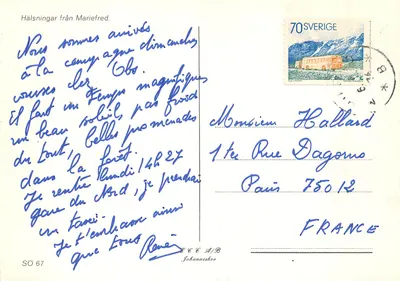 Hälsningar från Mariefred.
Nous sommes arrivés
à la campagne dimanche,
courses chez Obs.
Il fait un temps magnifique,
un beau soleil, pas froid
du tout, belles promenades
dans la forêt.
Je rentre lundi 14h27
gare du Nord, je prendrai
un taxi.
Je t'embrasse ainsi
que tous René
SÖ 67
A/B
Johanneshov
70 SVERIGE
Monsieur Hallard
1 ter Rue Dagorno
Paris 75012
FRANCE